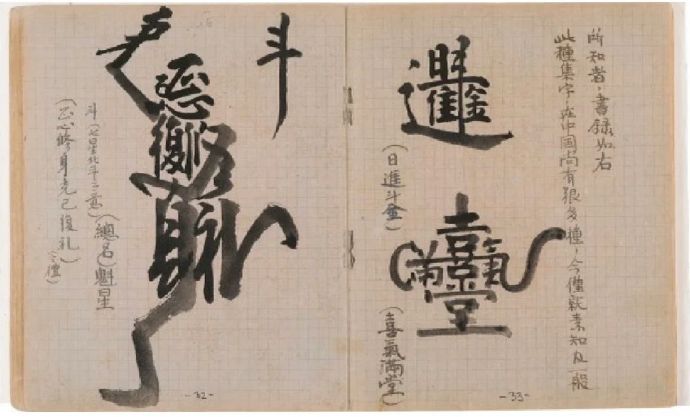 斗
(正心修身克己復礼)
斗(七星北斗之意)
(總名)魁星
-32-
(日進斗金)
(喜氣滿堂)
此種集字,在中國尚有很多種,今僅就素知及一般
所知者,書錄如右
-33-